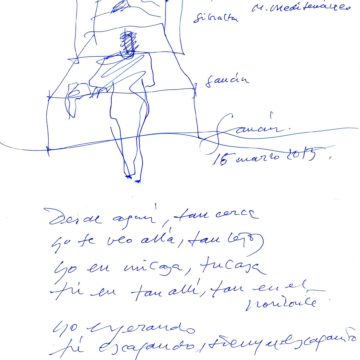 M. Mediterráneo
Gibraltar
Gaucín
Gaucín.
15 marzo 2015.
Desde aquí, tan cerca
yo te veo allá, tan lejos
yo en mi casa, tu casa
tú en tan allí, tan en el
horizonte
yo esperando
tú escapando,